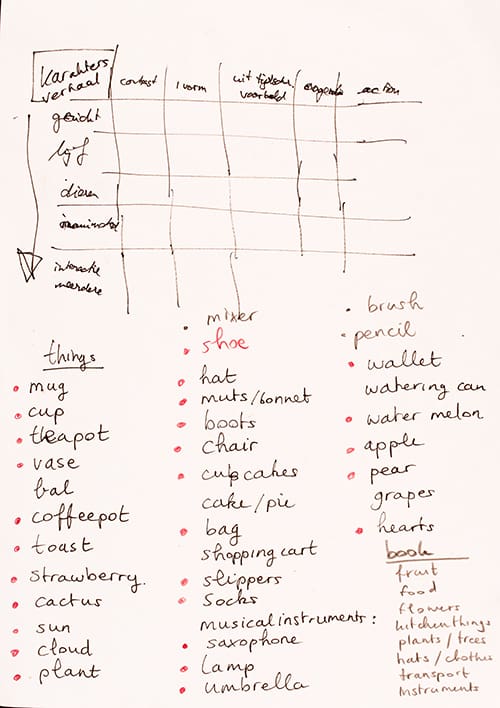 Karakters verhaal
contrast
1 vorm
action
gezicht
lijf
dieren
interactie
meerdere
things
mug
cup
theapot
vase
bal
coffeepot
toast
strawberry.
cactus
sun
cloud
plant
mixer
shoe
hat
muts/bonnet
boots
chair
cupcakes
cake/pie
bag
shopping cart
slippers
socks
musical instruments:
saxophone
lamp
umbrella
brush
pencil
wallet
watering can
water melon
apple
pear
grapes
hearts
book
fruit
food
flowers
kitchen things
plants / trees
hats / clothes
transport
Instruments